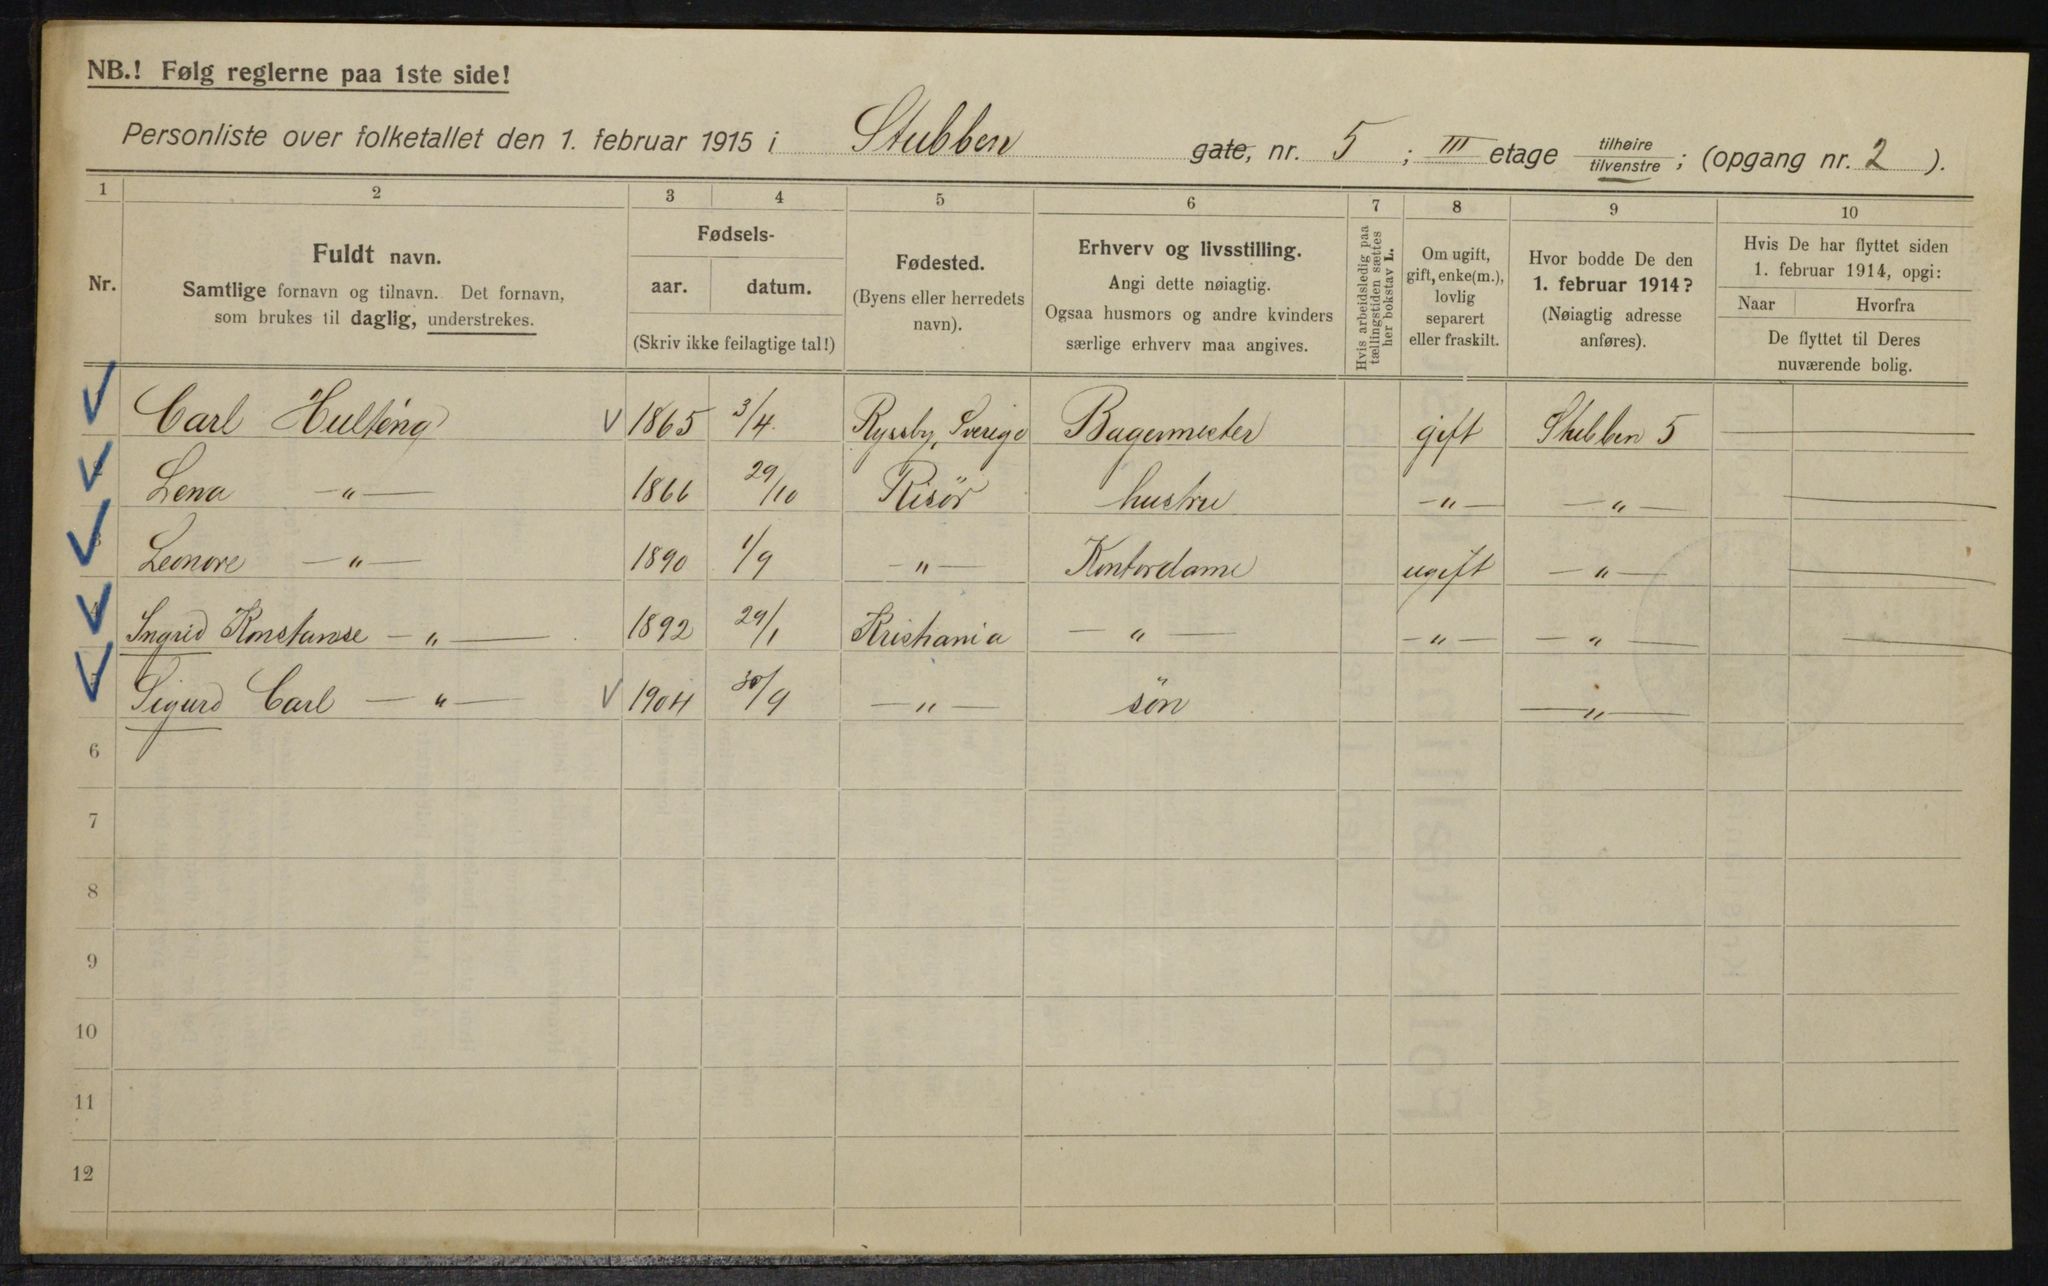 NB.! Følg reglerne paa 1ste side!
Personliste over folketallet den 1. februar 1915 i Stubben gate, nr. 5 ; III etage tilhøire tilvenstre ; (opgang nr. 2 ).
1 2 3 4 5 6 7 8 9 10
Nr.
Fuldt navn.
Samtlige fornavn og tilnavn. Det fornavn,
som brukes til daglig, understrekes.
Fødsels-
aar. datum.
(Skriv ikke feilagtige tal!)
Fødested.
(Byens eller herredets
navn).
Erhverv og livsstilling.
Angi dette nøiagtig.
Ogsaa husmors og andre kvinders
særlige erhverv maa angives.
Hvis arbeidsledig paa
tællingstiden sættes
her bokstav L.
Om ugift,
gift, enke(m.),
lovlig
separert
eller fraskilt.
Hvor bodde De den
1. februar 1914?
(Nøiagtig adresse
anføres).
Hvis De har flyttet siden
1. februar 1914, opgi:
Naar Hvorfra
De flyttet til Deres
nuværende bolig.
Carl Hulténg 1865 3/4 Ryssby, Sverige Bagermester gift Stubben 5
2 Lena —"— 1866 29/10 Risör hustru —"— —"—
3 Leonore —"— 1890 1/9 —"— Kontordame ugift —"—
4 Ingrid Konstanse —"— 1892 29/1 Kristiania —"— —"— —"—
5 Sigurd Carl —"— 1904 30/9 —"— sön —"—
6
7
8
9
10
11
12